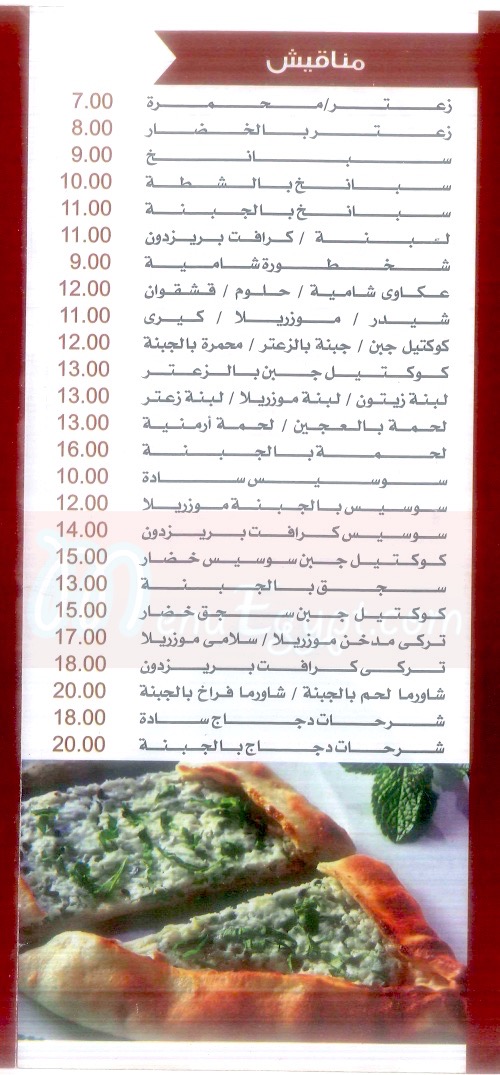 مناقيش
زعتر/محمرة 7.00
زعتر بالخضار 8.00
سبانخ 9.00
سبانخ بالشطة 10.00
سبانخ بالجبنة 11.00
لبنة / كرافت بريزدون 11.00
شخطورة شامية 9.00
عكاوى شامية / حلوم / قشقوان 12.00
شيدر / موزريلا / كيرى 11.00
كوكتيل جبن / جبنة بالزعتر / محمرة بالجبنة 12.00
كوكتيل جبن بالزعتر 13.00
لبنة زيتون / لبنة موزريلا / لبنة زعتر 13.00
لحمة بالعجين / لحمة أرمنية 13.00
لحمة بالجبنة 16.00
سوسيس سادة 10.00
سوسيس بالجبنة موزريلا 12.00
سوسيس كرافت بريزدون 14.00
كوكتيل جبن سوسيس خضار 15.00
سجق بالجبنة 13.00
كوكتيل جبن سجق خضار 15.00
تركى مدخن موزريلا / سلامى موزريلا 17.00
تركى كرافت بريزدون 18.00
شاورما لحم بالجبنة / شاورما فراخ بالجبنة 20.00
شرحات دجاج سادة 18.00
شرحات دجاج بالجبنة 20.00
MenuEgypt.com